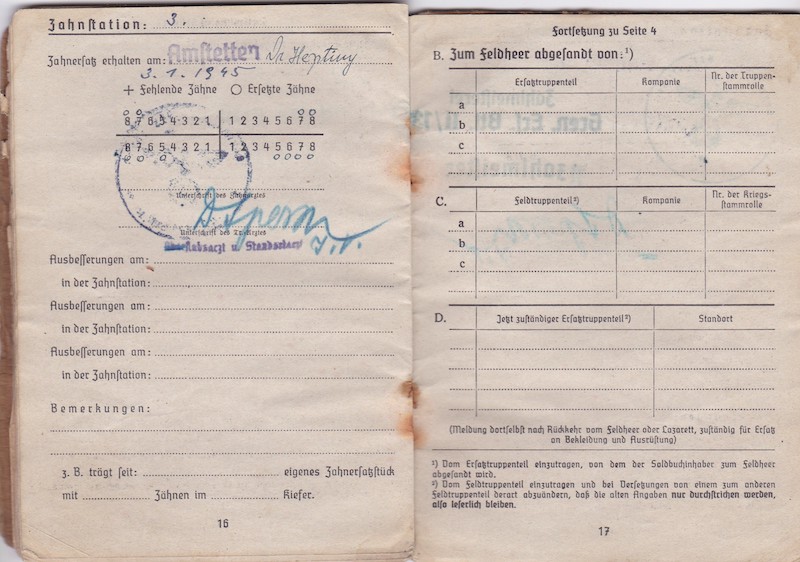 Zahnstation: 3.
Zahnersatz erhalten am: Amstetten Dr
3.1.1945
+ Fehlende Zähne O Ersetzte Zähne
8 7 6 5 4 3 2 1 | 1 2 3 4 5 6 7 8
8 7 6 5 4 3 2 1 | 1 2 3 4 5 6 7 8
Unterschrift des Zahnarztes
Unterschrift des Tr.-Arztes
Oberstabsarzt u. Standortarzt
Ausbesserungen am:
in der Zahnstation:
Ausbesserungen am:
in der Zahnstation:
Ausbesserungen am:
in der Zahnstation:
Bemerkungen:
z. B. trägt seit: eigenes Zahnersatzstück
mit Zähnen im Kiefer.
16
Fortsetzung zu Seite 4
B. Zum Feldheer abgesandt von:¹)
Ersatztruppenteil Kompanie Nr. der Truppen-
stammrolle
a
b
c
C. Feldtruppenteil²) Kompanie Nr. der Kriegs-
stammrolle
a
b
c
D. Jetzt zuständiger Ersatztruppenteil²) Standort
(Meldung dortselbst nach Rückkehr vom Feldheer oder Lazarett, zuständig für Ersatz
an Bekleidung und Ausrüstung)
¹) Vom Ersatztruppenteil einzutragen, von dem der Soldbuchinhaber zum Feldheer
abgesandt wird.
²) Vom Feldtruppenteil einzutragen und bei Versetzungen von einem zum anderen
Feldtruppenteil derart abzuändern, daß die alten Angaben nur durchstrichen werden,
also leserlich bleiben.
17